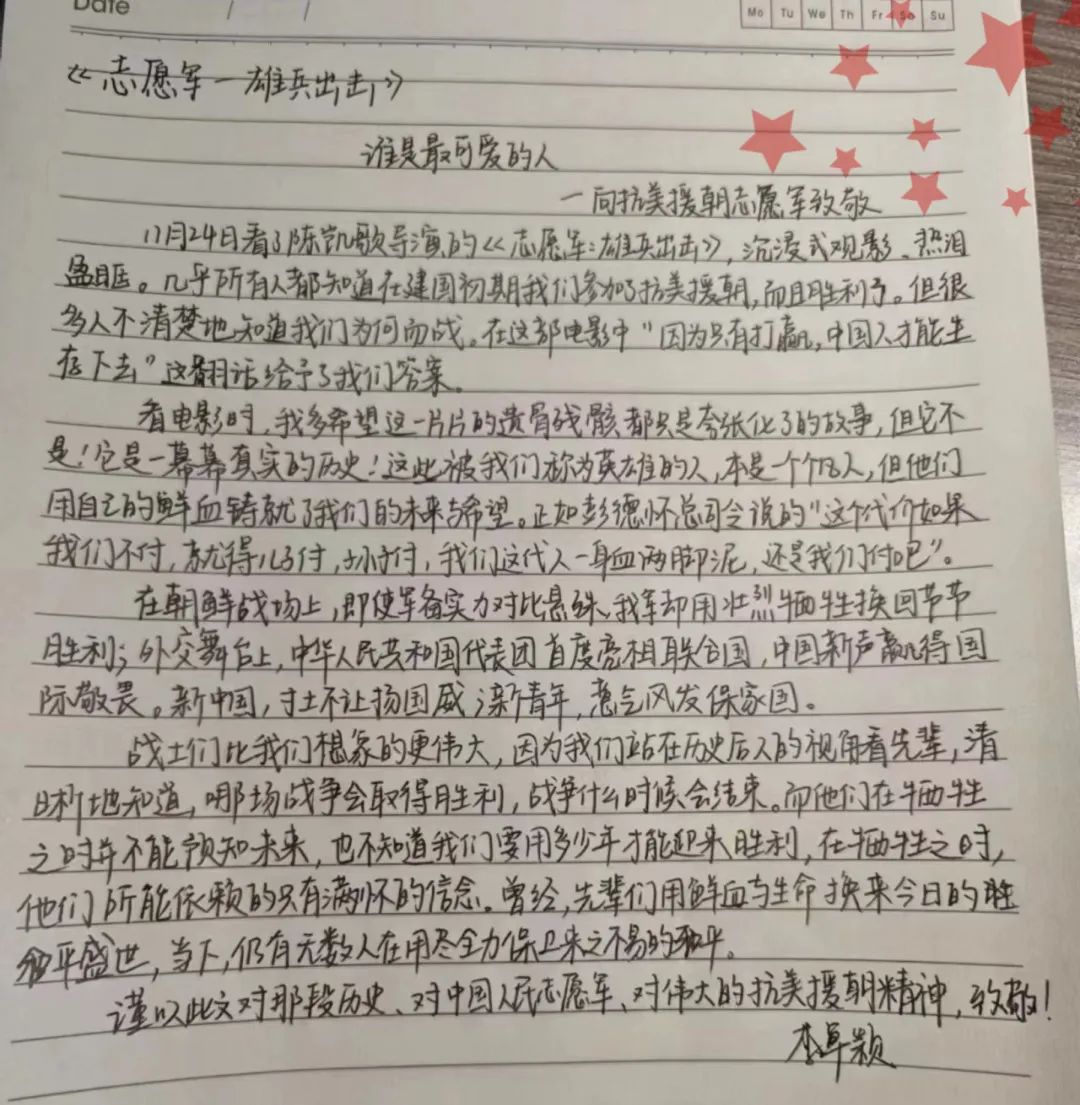 Date
Mo Tu We Th Fr Sa Su
《志愿军一雄兵出击》
谁是最可爱的人
一向抗美援朝志愿军致敬
11月24日看了陈凯歌导演的《志愿军:雄兵出击》,沉浸式观影、热泪
盈眶。几乎所有人都知道在建国初期我们参加了抗美援朝,而且胜利了。但很
多人不清楚地知道我们为何而战。在这部电影中"因为只有打赢,中国人才能生
存下去"这翻话给予了我们答案。
看电影时,我多希望这一片片的遗骨残骸都只是夸张化了的故事,但它不
是!它是一幕幕真实的历史!这些被我们称为英雄的人,本是一个个凡人,但他们
用自己的鲜血铸就了我们的未来与希望。正如彭德怀总司令说的"这个代价如果
我们不付,就得儿子付,孙子付,我们这代人一身血两脚泥,还是我们付吧"。
在朝鲜战场上,即使军备实力对比悬殊,我军却用壮烈牺牲换回节节
胜利;外交舞台上,中华人民共和国代表团首度亮相联合国,中国新声赢得国
际敬畏。新中国,寸土不让扬国威;新青年,意气风发保家国。
战士们比我们想象的更伟大,因为我们站在历史后人的视角看先辈,清
晰地知道,哪场战争会取得胜利,战争什么时候会结束。而他们在牺牲
之时并不能预知未来,也不知道我们要用多少年才能迎来胜利,在牺牲之时,
他们所能依赖的只有满怀的信念。曾经,先辈们用鲜血与生命换来今日的
和平盛世,当下,仍有无数人在用尽全力保卫来之不易的和平。
谨以此文对那段历史、对中国人民志愿军、对伟大的抗美援朝精神,致敬!
李卓颖